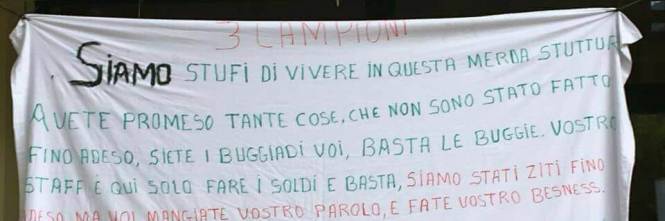 3 CAMPIONI
SIAMO STUFI DI VIVERE IN QUESTA MERDA STUTTUR
AVETE PROMESO TANTE COSE, CHE NON SONO STATO FATTO
FINO ADESO, SIETE I BUGGIADI VOI, BASTA LE BUGGIE. VOSTRO
STAFF E QUI SOLO FARE I SOLDI E BASTA, SIAMO STATI ZITI FINO
ADESO MA VOI MANGIATE VOSTRO PAROLO, E FATE VOSTRO BESNESS.